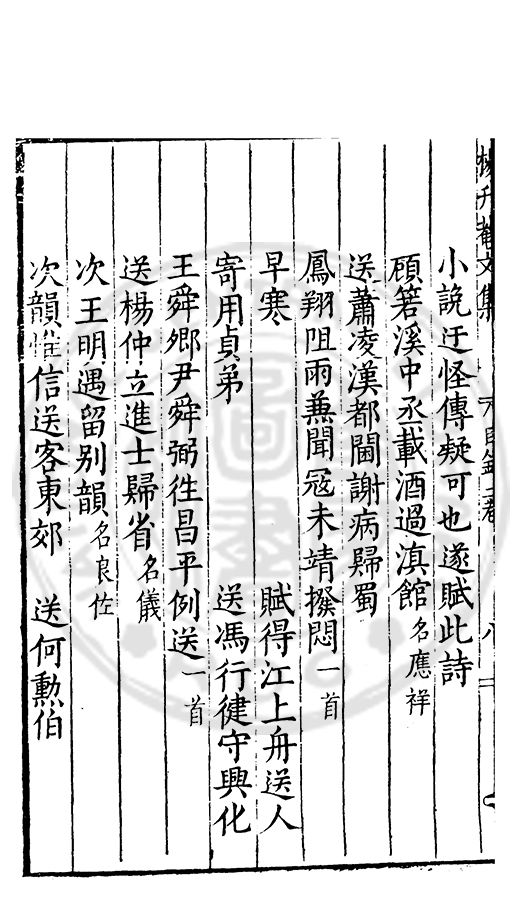 楊升菴文集 大目錄上卷 八
小說迂怪傳疑可也遂賦此詩
顧箬溪中丞載酒過滇館名應祥
送蕭凌漢都閫謝病歸蜀
鳳翔阻雨兼聞寇未靖撥悶一首
早寒 賦得江上舟送人
寄用貞弟 送馮行健守興化
王舜卿尹舜弼往昌平例送一首
送楊仲立進士歸省名儀
次王明遇留別韻名良佐
次韻惟信送客東郊 送何勳伯